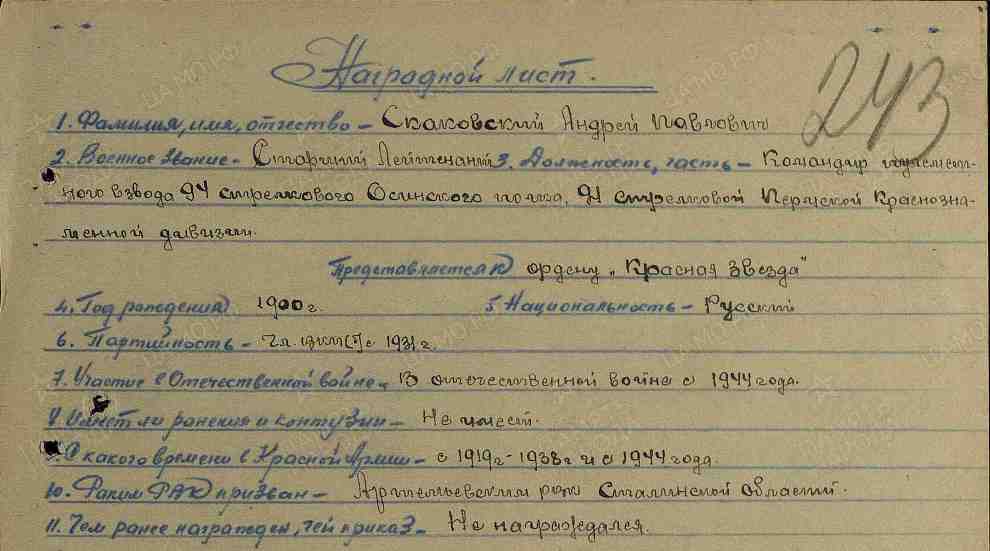 Наградной лист.
243
1. Фамилия, имя, отчество – Скаковский Андрей Павлович
2. Военное звание – Старший Лейтенант 3. Должность, часть – Командир пулемет-
ного взвода 94 стрелкового Осинского полка, 91 стрелковой Пермской Краснозна-
менной дивизии.
Представляется к ордену „Красная звезда"
4. Год рождения 1900 г. 5. Национальность – Русский
6. Партийность – Чл. ВКП(б) с 1931 г.
7. Участие в Отечественной войне – В отечественной войне с 1944 года.
8. Имеет ли ранения и контузии – Не имеет.
9. С какого времени в Красной Армии – с 1919 г – 1938 г и с 1944 года.
10. Каким РВК призван – РВК Сталинской области.
11. Чем ранее награжден, чей приказ – Не награждался.
ЦА МО РФ